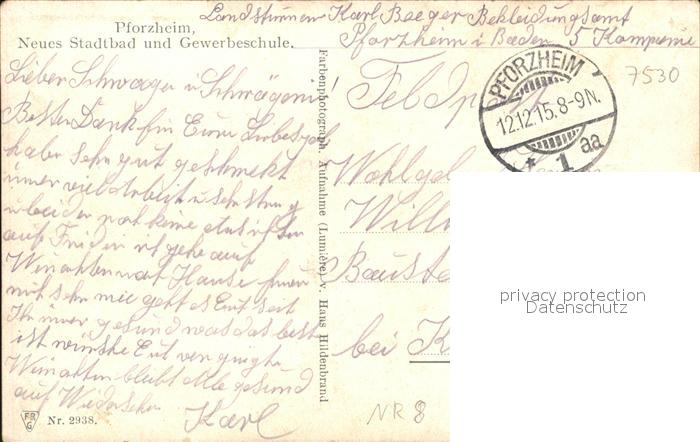 Landsturmm Karl Baeger Bekleidungsamt
Pforzheim i Baden 5 Kompanie
Pforzheim,
Neues Stadtbad und Gewerbeschule.
7530
PFORZHEIM
12.12.15.8-9N.
* 1 aa
Lieber Schwager u Schwägerin!
Besten Dank für Eure
haben sehr gut geschmekt
imer viel Arbeit u sehr
u leider noch keine
auf Frieden ich gehe auf
Weinachten nach Hause freue
mich sehr wie geht es Euch seit
Ihr imer gesund was das beste
ist wünsche Euch vergnügte
Weinachten bleibt alle gesund
auf Wiedersehen
Karl
Farbenphotograph. Aufnahme (Lumière) v. Hans Hildenbrand
Feldpost
Bausta
bei K
privacy protection
Datenschutz
FR
G
Nr. 2938.
NR 8